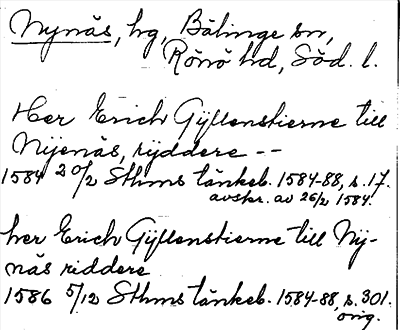 Nynäs, hg, Bälinge sn,
Rönö hd, Söd. l.
Her Erich Gÿllenstierne till
Nÿenäs, rÿddere --
1584 20/2 Sthms tänkeb. 1584-88, s. 17.
avskr. av 26/2 1584.
her Erich Gÿllenstierne till Nÿ-
näs riddere
1586 5/12 Sthms tänkeb. 1584-88, s. 301.
orig.